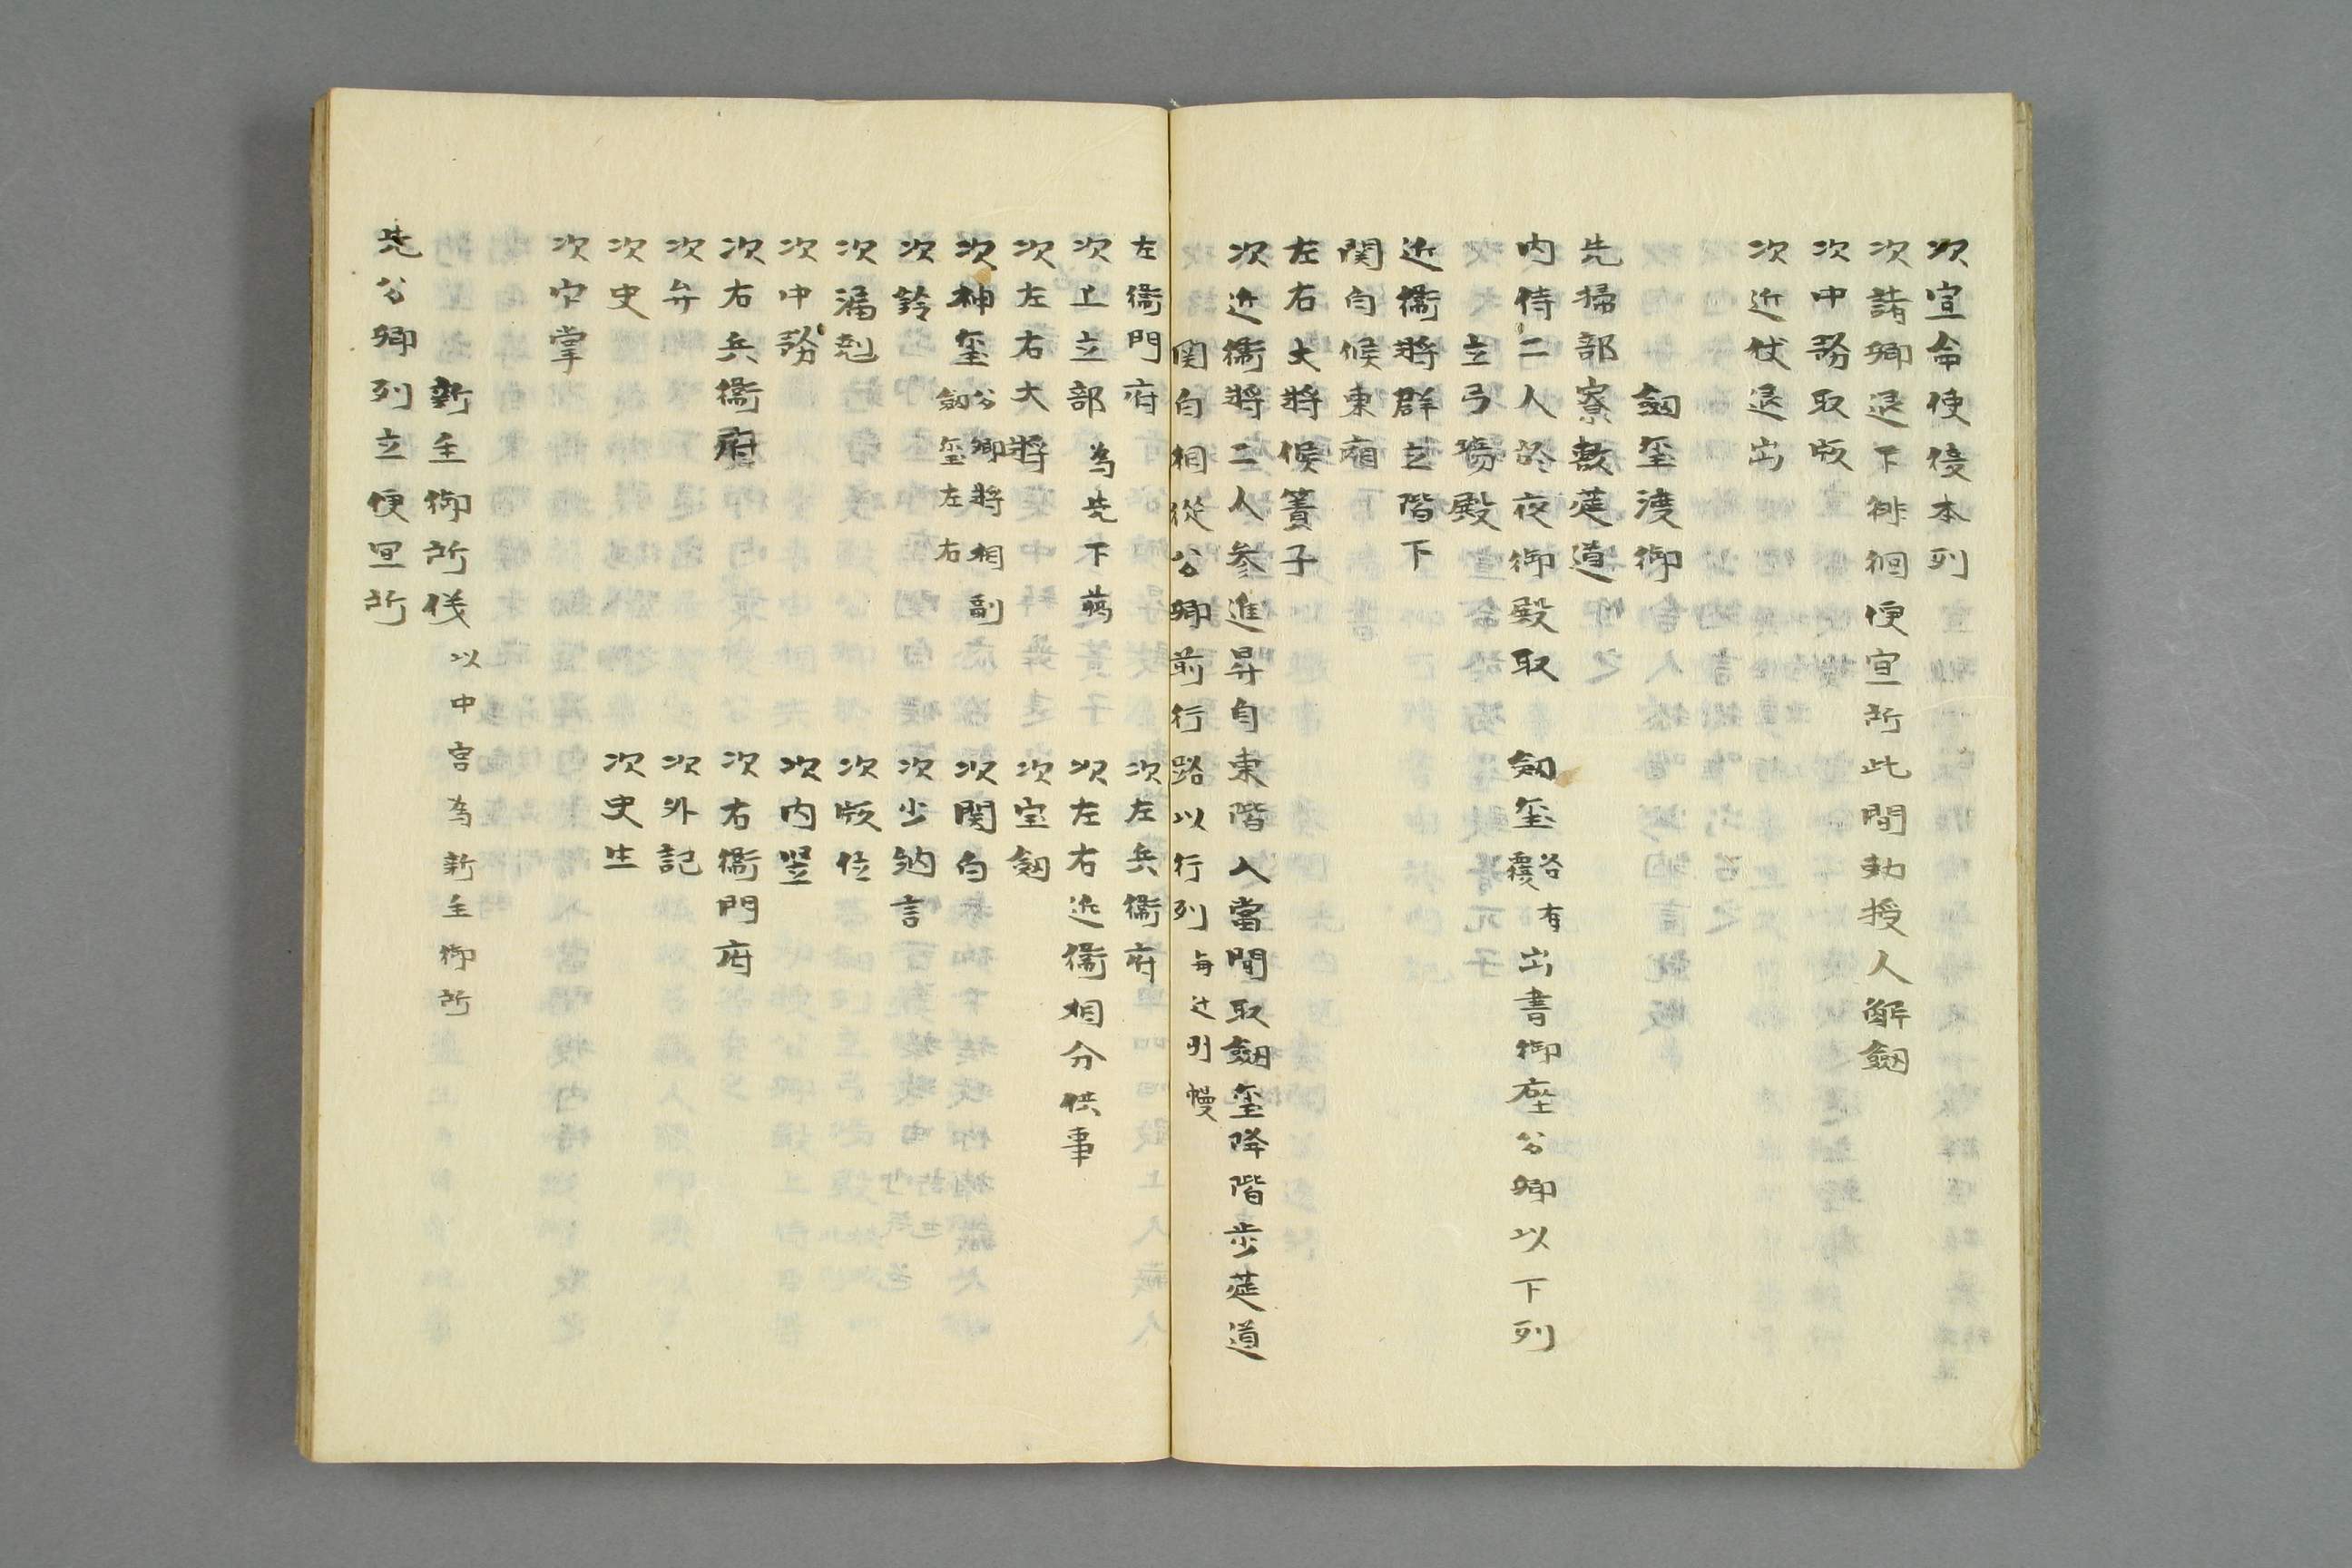 次宣命使復本列
次諸卿退下徘徊便宣所此間勅授人解劔
次中務取版
次近仗退出
劔璽渡御
先掃部寮敷莚道
内侍二人於夜御殿取　劔璽各有覆出書御座公卿以下列
立弓場殿
近衛将群立階下
関白候東廂
左右大将候簀子
次近衛将二人参進昇自東階入當間取劔璽降階歩莚道
関白相従公卿前行路以行列
左衛門府　次左兵衛府
次上立部為先下﨟　次左右近衛相分供事
次左右大将　次宝劔
次神璽公卿将相副劔璽左右　次関白
次鈴　次少納言
次漏尅　次版位
次中務　次内竪
次右兵衛府　次右衛門府
次弁　次外記
次史　次史生
次官掌
新主御所儀以中宮為新主御所
先公卿列立便宜所